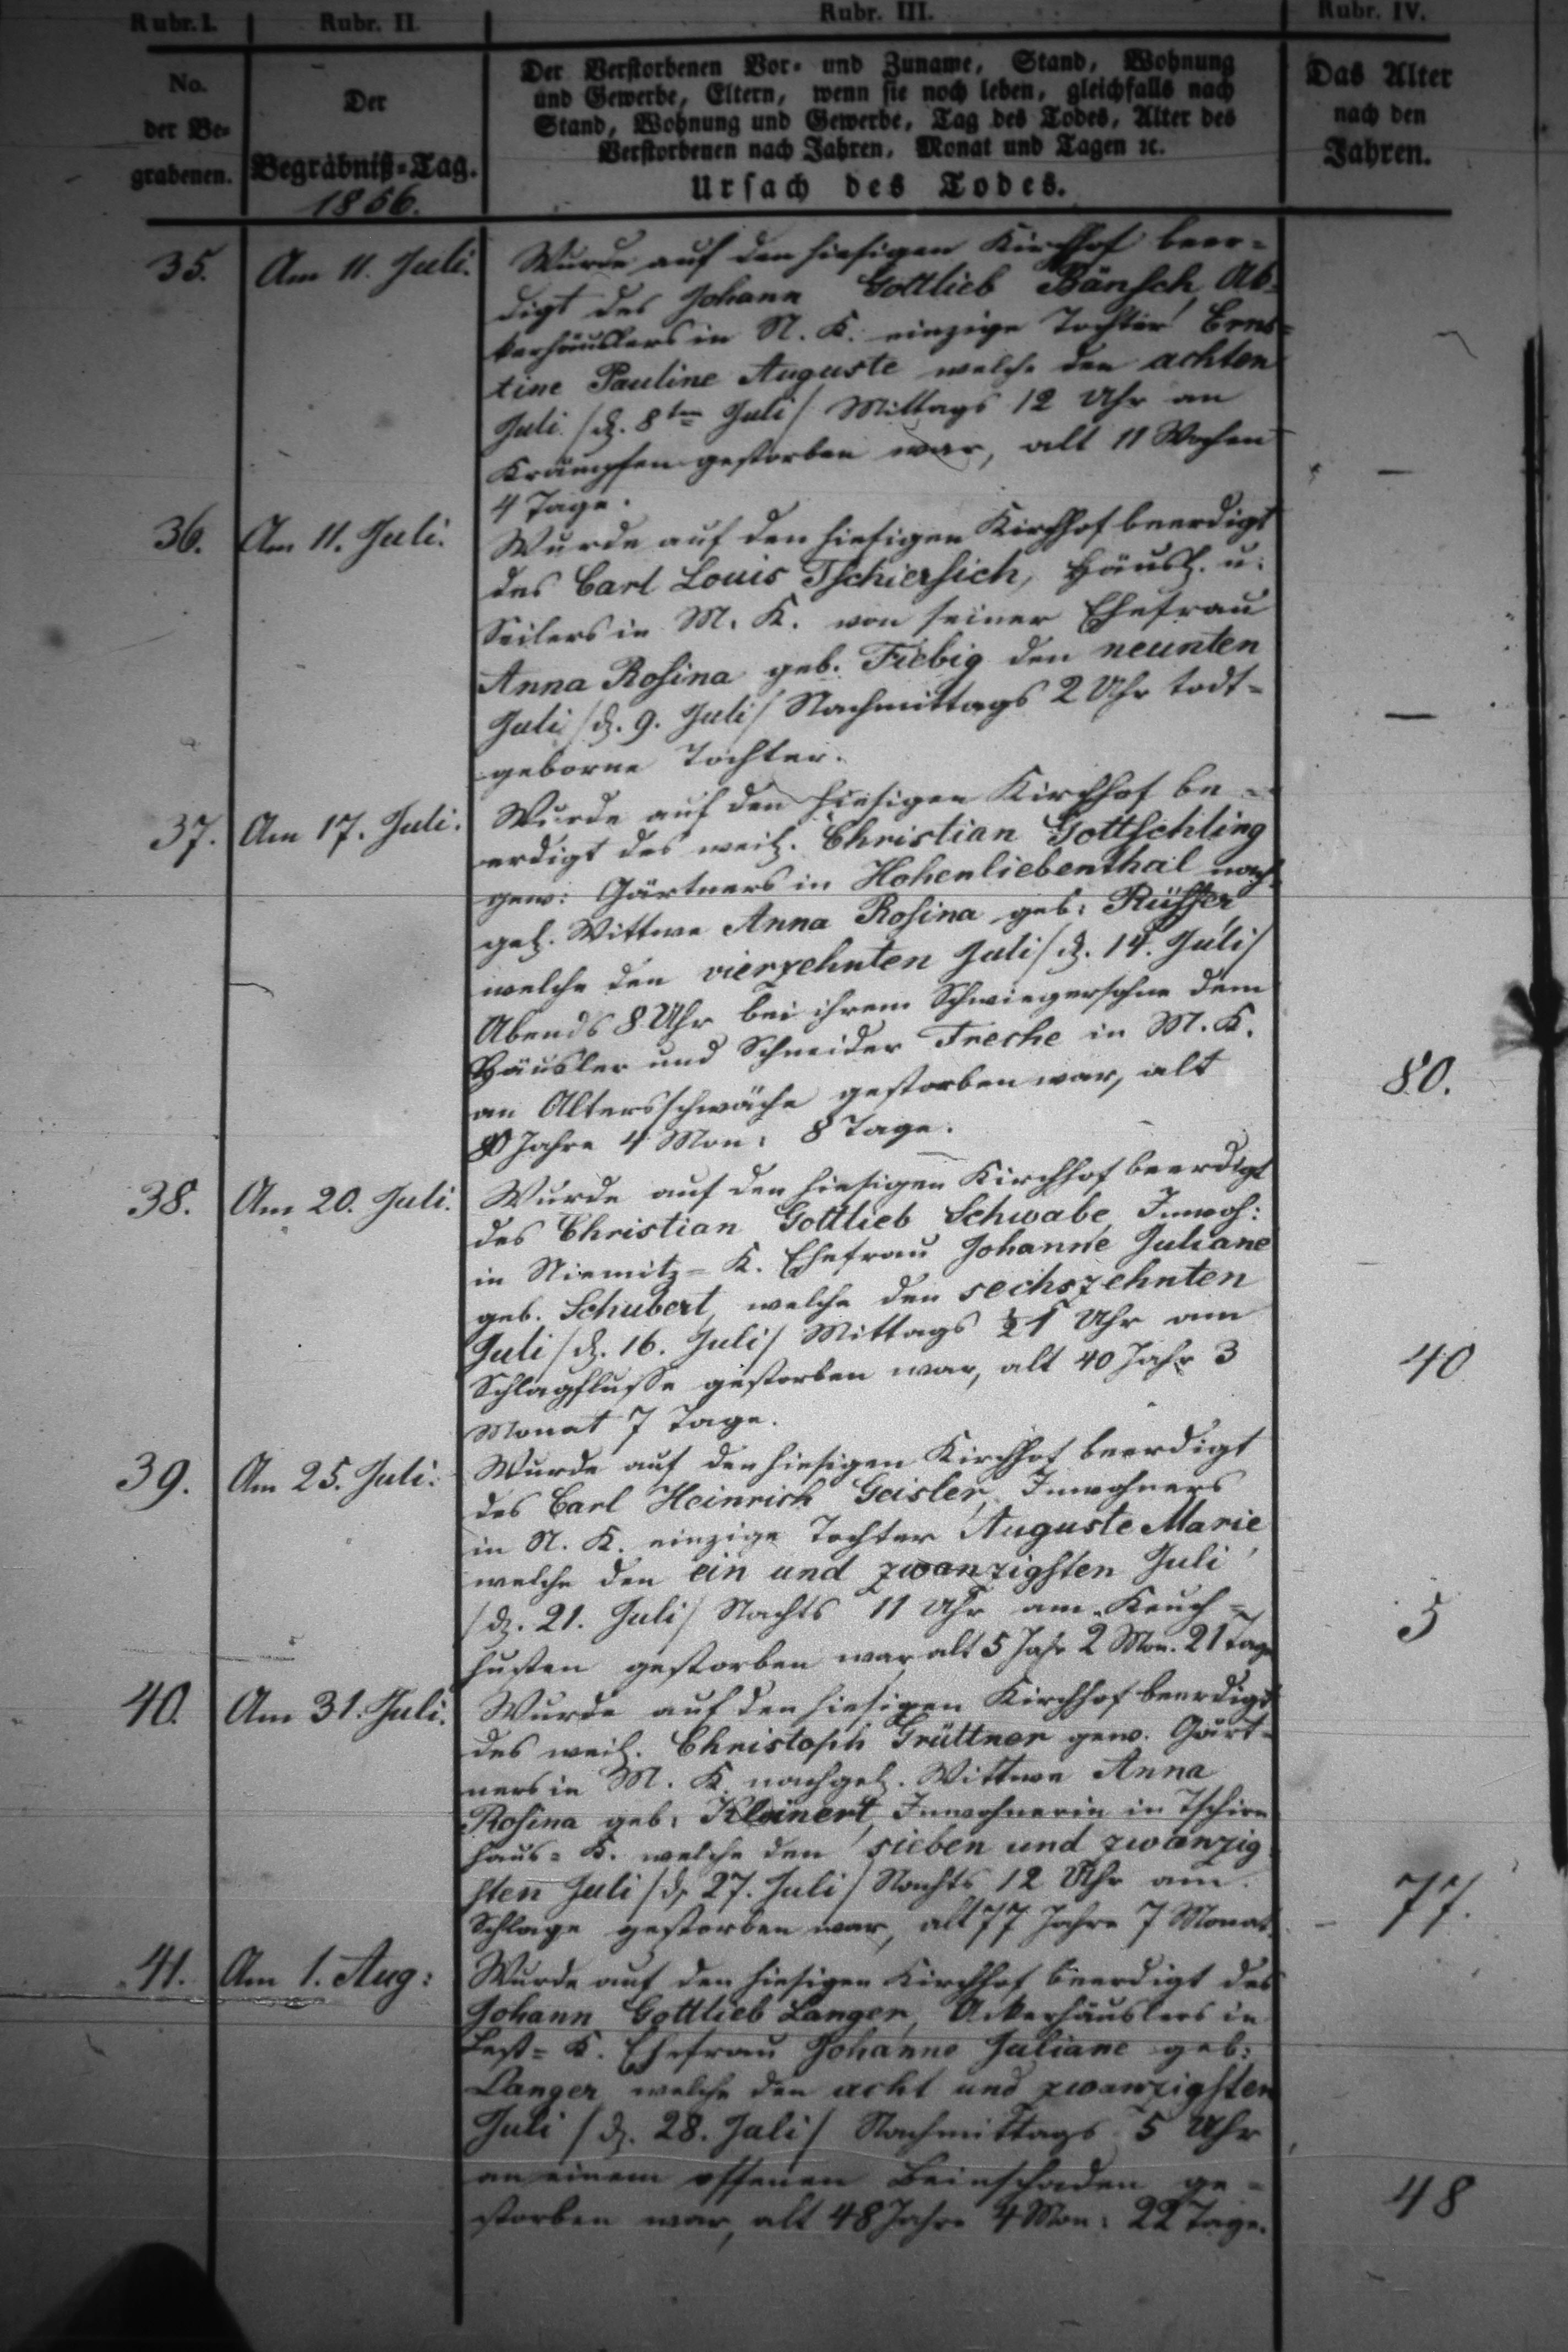 Rubr. I. Rubr. II. Rubr. III. Rubr. IV.
No. der Begrabenen.
Der Begräbniß-Tag.
1856.
Der Verstorbenen Vor- und Zuname, Stand, Wohnung
und Gewerbe, Eltern, wenn sie noch leben, gleichfalls nach
Stand, Wohnung und Gewerbe, Tag des Todes, Alter des
Verstorbenen nach Jahren, Monat und Tagen ꝛc.
Ursach des Todes.
Das Alter
nach den
Jahren.
35. Am 11. Juli. Wurde auf den hiesigen Kirchhof beer=
digt des Johann Gottlieb Bänsch, Ak=
kerhäuslers in N. K. einzige Tochter Ernes=
tine Pauline Auguste welche den achten
Juli /d. 8ten Juli/ Mittags 12 Uhr an
Krämpfen gestorben war, alt 11 Wochen —
4 Tage.
36. Am 11. Juli. Wurde auf den hiesigen Kirchhof beerdigt
des Carl Louis Tschiersich, Häusl. u.
Seilers in M. K. von seiner Ehefrau
Anna Rosina geb. Fiebig den neunten
Juli /d. 9. Juli/ Nachmittags 2 Uhr todt= —
geborne Tochter.
37. Am 17. Juli. Wurde auf den hiesigen Kirchhof be=
erdigt des weil. Christian Gottschling
gew: Gärtners in Hohenliebenthal nach=
gel. Wittwe Anna Rosina geb: Rüffer
welche den vierzehnten Juli /d. 14. Juli/
Abends 8 Uhr bei ihrem Schwiegersohne dem
Häusler und Schneider Freche in M. K.
an Altersschwäche gestorben war, alt 80.
80 Jahre 4 Mon: 8 Tage.
38. Am 20. Juli. Wurde auf den hiesigen Kirchhof beerdigt
des Christian Gottlieb Schwabe, Inwoh:
in Niemitz=K. Ehefrau Johanne Juliane
geb. Schubert, welche den sechszehnten
Juli /d. 16. Juli/ Mittags ½1 Uhr am
Schlagflusse gestorben war, alt 40 Jahr 3 40
Monat 7 Tage.
39. Am 25. Juli. Wurde auf den hiesigen Kirchhof beerdigt
des Carl Heinrich Geisler, Inwohners
in N. K. einzige Tochter Auguste Marie,
welche den ein und zwanzigsten Juli
/d. 21. Juli/ Nachts 11 Uhr am Keuch=
husten gestorben war alt 5 Jahr 2 Mon. 21 Tage 5
40. Am 31. Juli. Wurde auf den hiesigen Kirchhof beerdigt
des weil. Christoph Grüttner gew. Gärt=
ners in M. K. nachgel. Wittwe Anna
Rosina geb: Kleinert, Inwohnerin in Tschirn
haus=K. welche den sieben und zwanzig
sten Juli /d. 27. Juli/ Nachts 12 Uhr am
Schlage gestorben war, alt 77 Jahre 7 Monat. 77.
41. Am 1. Aug: Wurde auf den hiesigen Kirchhof beerdigt des
Johann Gottlieb Langer, Ackerhäuslers in
K. Ehefrau Johanne Juliane geb:
Langer welche den acht und zwanzigsten
Juli /d. 28. Juli/ Nachmittags 5 Uhr
an einem offenen Beinschaden ge=
storben war, alt 48 Jahre 4 Mon: 22 Tage. 48